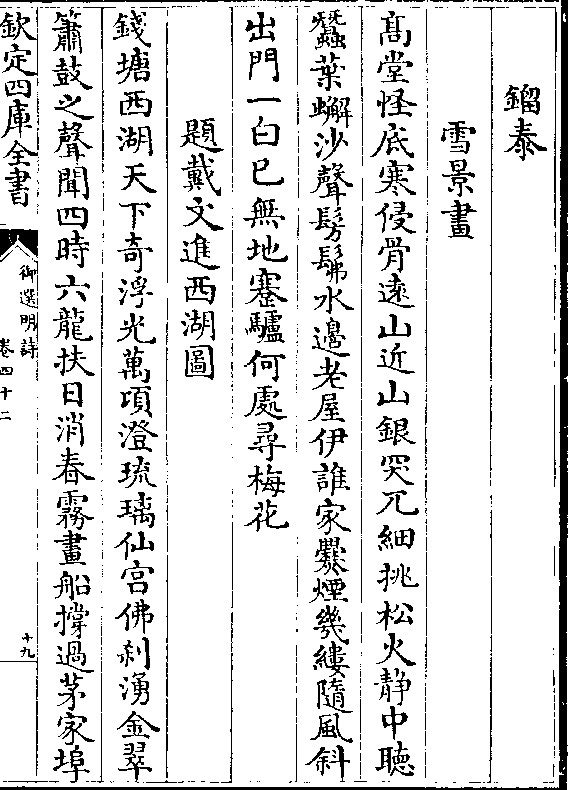 鎦泰
雪景畫
髙堂怪底寒侵骨逺山近山銀突兀細挑松火静中聽
蠶葉蠏沙聲髣髴水邊老屋伊誰家爨煙幾縷隨風斜
出門一白已無地蹇驢何處尋梅花
題戴文進西湖圖
錢塘西湖天下奇浮光萬頃澄琉璃仙宫佛刹湧金翠
簫鼓之聲聞四時六龍扶日消春霧畫船撐過茅家埠
欽定四庫全書
御選明詩
卷四十二
十九